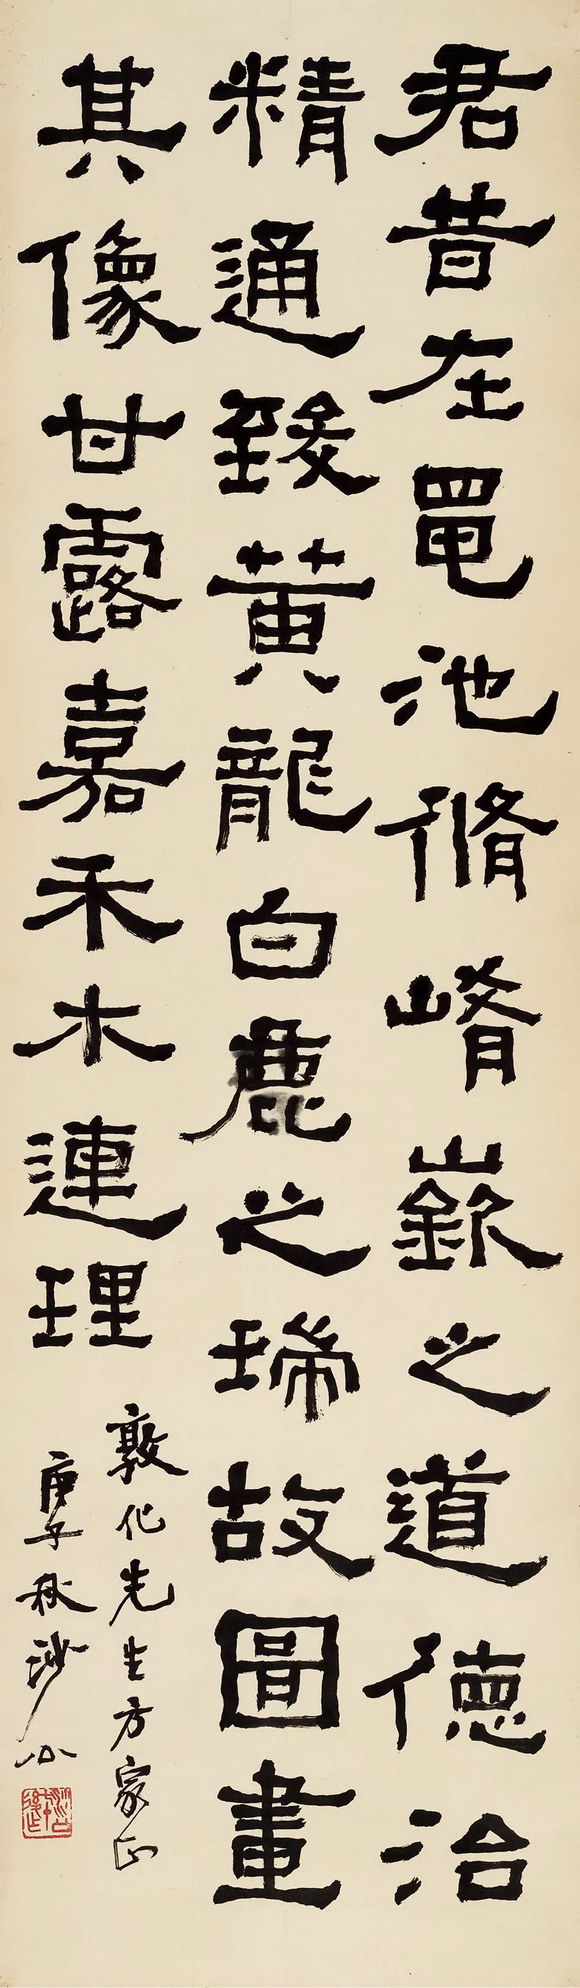 君昔在黽池脩崤嶔之道德治
精通致黄龍白鹿之瑞故圖畫
其像甘露嘉禾木連理
敦化先生方家正
庚子秋沙